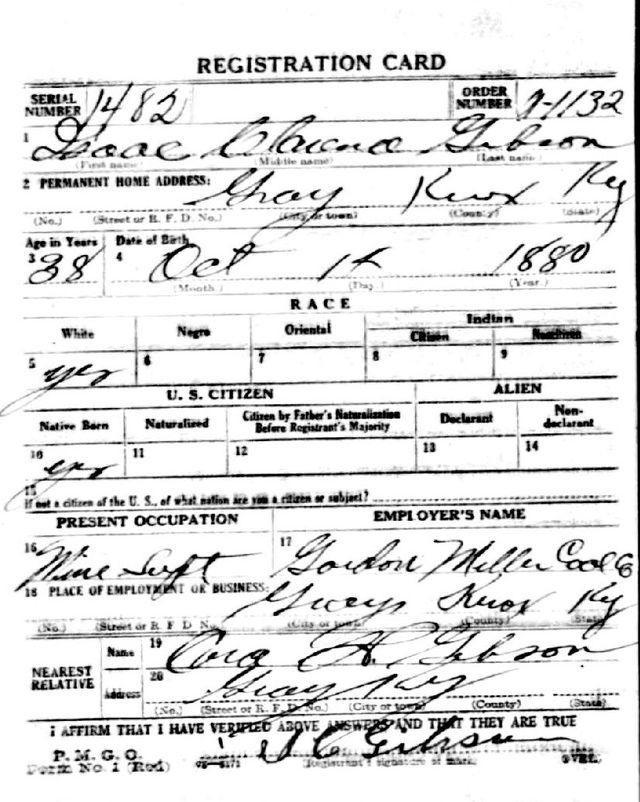 REGISTRATION CARD
SERIAL NUMBER 1482 ORDER NUMBER A-1132
1 Isaac Clarence Gibson
(First name) (Middle name) (Last name)
2 PERMANENT HOME ADDRESS: Gray Knox Ky
(No.) (Street or R. F. D. No.) (City or town) (County) (State)
Age in Years Date of Birth
3 38 4 Oct 14 1880
(Month.) (Day.) (Year.)
RACE
White Negro Oriental Indian
Citizen Noncitizen
5 yes 6 7 8 9
U. S. CITIZEN ALIEN
Native Born Naturalized Citizen by Father's Naturalization Before Registrant's Majority Declarant Non-declarant
10 yes 11 12 13 14
15
If not a citizen of the U. S., of what nation are you a citizen or subject?
PRESENT OCCUPATION EMPLOYER'S NAME
16 Mine Supt 17 Gordon Miller Coal Co
18 PLACE OF EMPLOYMENT OR BUSINESS:
Grays Knox Ky
(No.) (Street or R. F. D. No.) (City or town) (County) (State)
NEAREST RELATIVE
Name 19 Cora A. Gibson
Address 20 Gray Ky
(No.) (Street or R. F. D. No.) (City or town) (County) (State)
I AFFIRM THAT I HAVE VERIFIED ABOVE ANSWERS AND THAT THEY ARE TRUE
P. M. G. O.
Form No. 1 (Red) I C Gibson
(Registrant's signature or mark) (OVER)